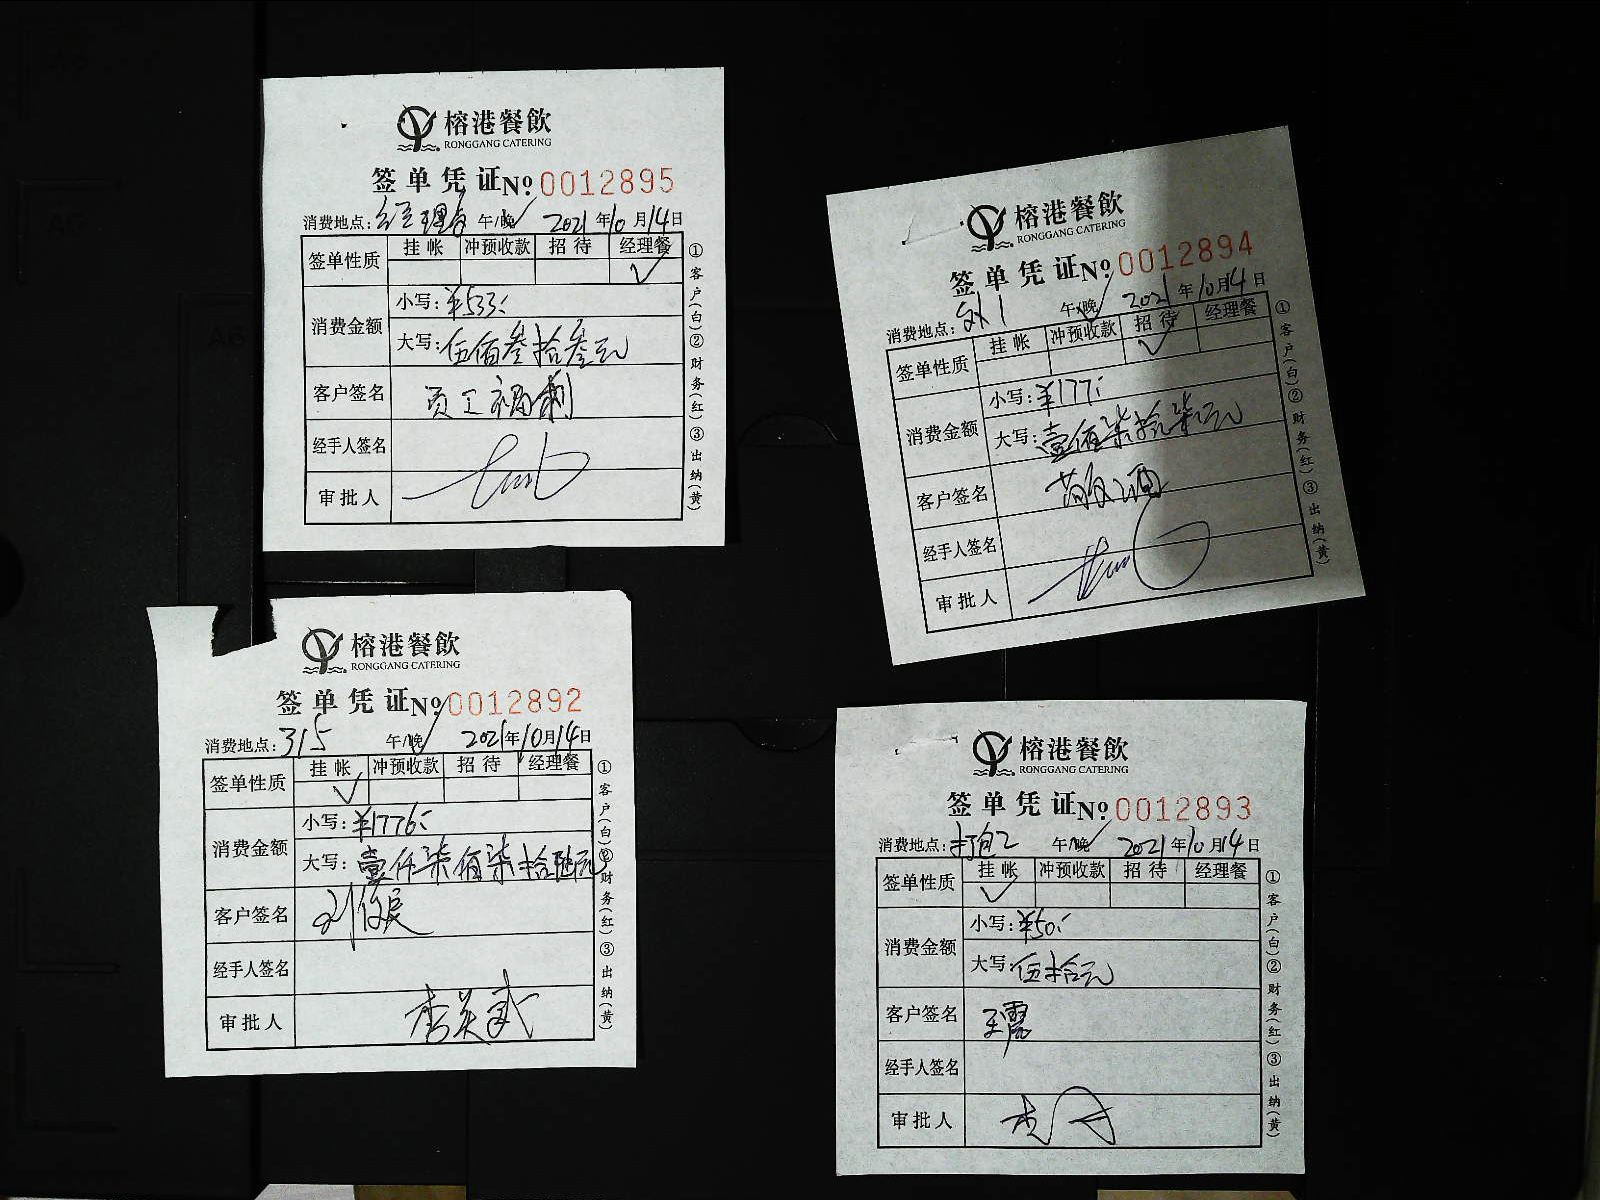 榕港餐飲
RONGGANG CATERING
签单凭证 No 0012895
消费地点: 经理房 午/晚 ✓ 2021年10月14日
签单性质 挂帐 冲预收款 招待 经理餐
✓
消费金额 小写: ¥533:
大写: 伍佰叁拾叁元
客户签名 员工福利
经手人签名
审批人
①客户(白)②财务(红)③出纳(黄)
榕港餐飲
RONGGANG CATERING
签单凭证 No 0012894
消费地点: 外1 午/晚 ✓ 2021年10月14日
签单性质 挂帐 冲预收款 招待 经理餐
✓
消费金额 小写: ¥177:
大写: 壹佰柒拾柒元
客户签名 敬酒
经手人签名
审批人
①客户(白)②财务(红)③出纳(黄)
榕港餐飲
RONGGANG CATERING
签单凭证 No 0012892
消费地点: 315 午/晚 ✓ 2021年10月14日
签单性质 挂帐 冲预收款 招待 经理餐
✓
消费金额 小写: ¥1776:
大写: 壹仟柒佰柒拾陆元
客户签名 刘俊辰
经手人签名
审批人 李美武
①客户(白)②财务(红)③出纳(黄)
榕港餐飲
RONGGANG CATERING
签单凭证 No 0012893
消费地点: 打包2 午/晚 ✓ 2021年10月14日
签单性质 挂帐 冲预收款 招待 经理餐
✓
消费金额 小写: ¥50:
大写: 伍拾元
客户签名 王霞
经手人签名
审批人
①客户(白)②财务(红)③出纳(黄)